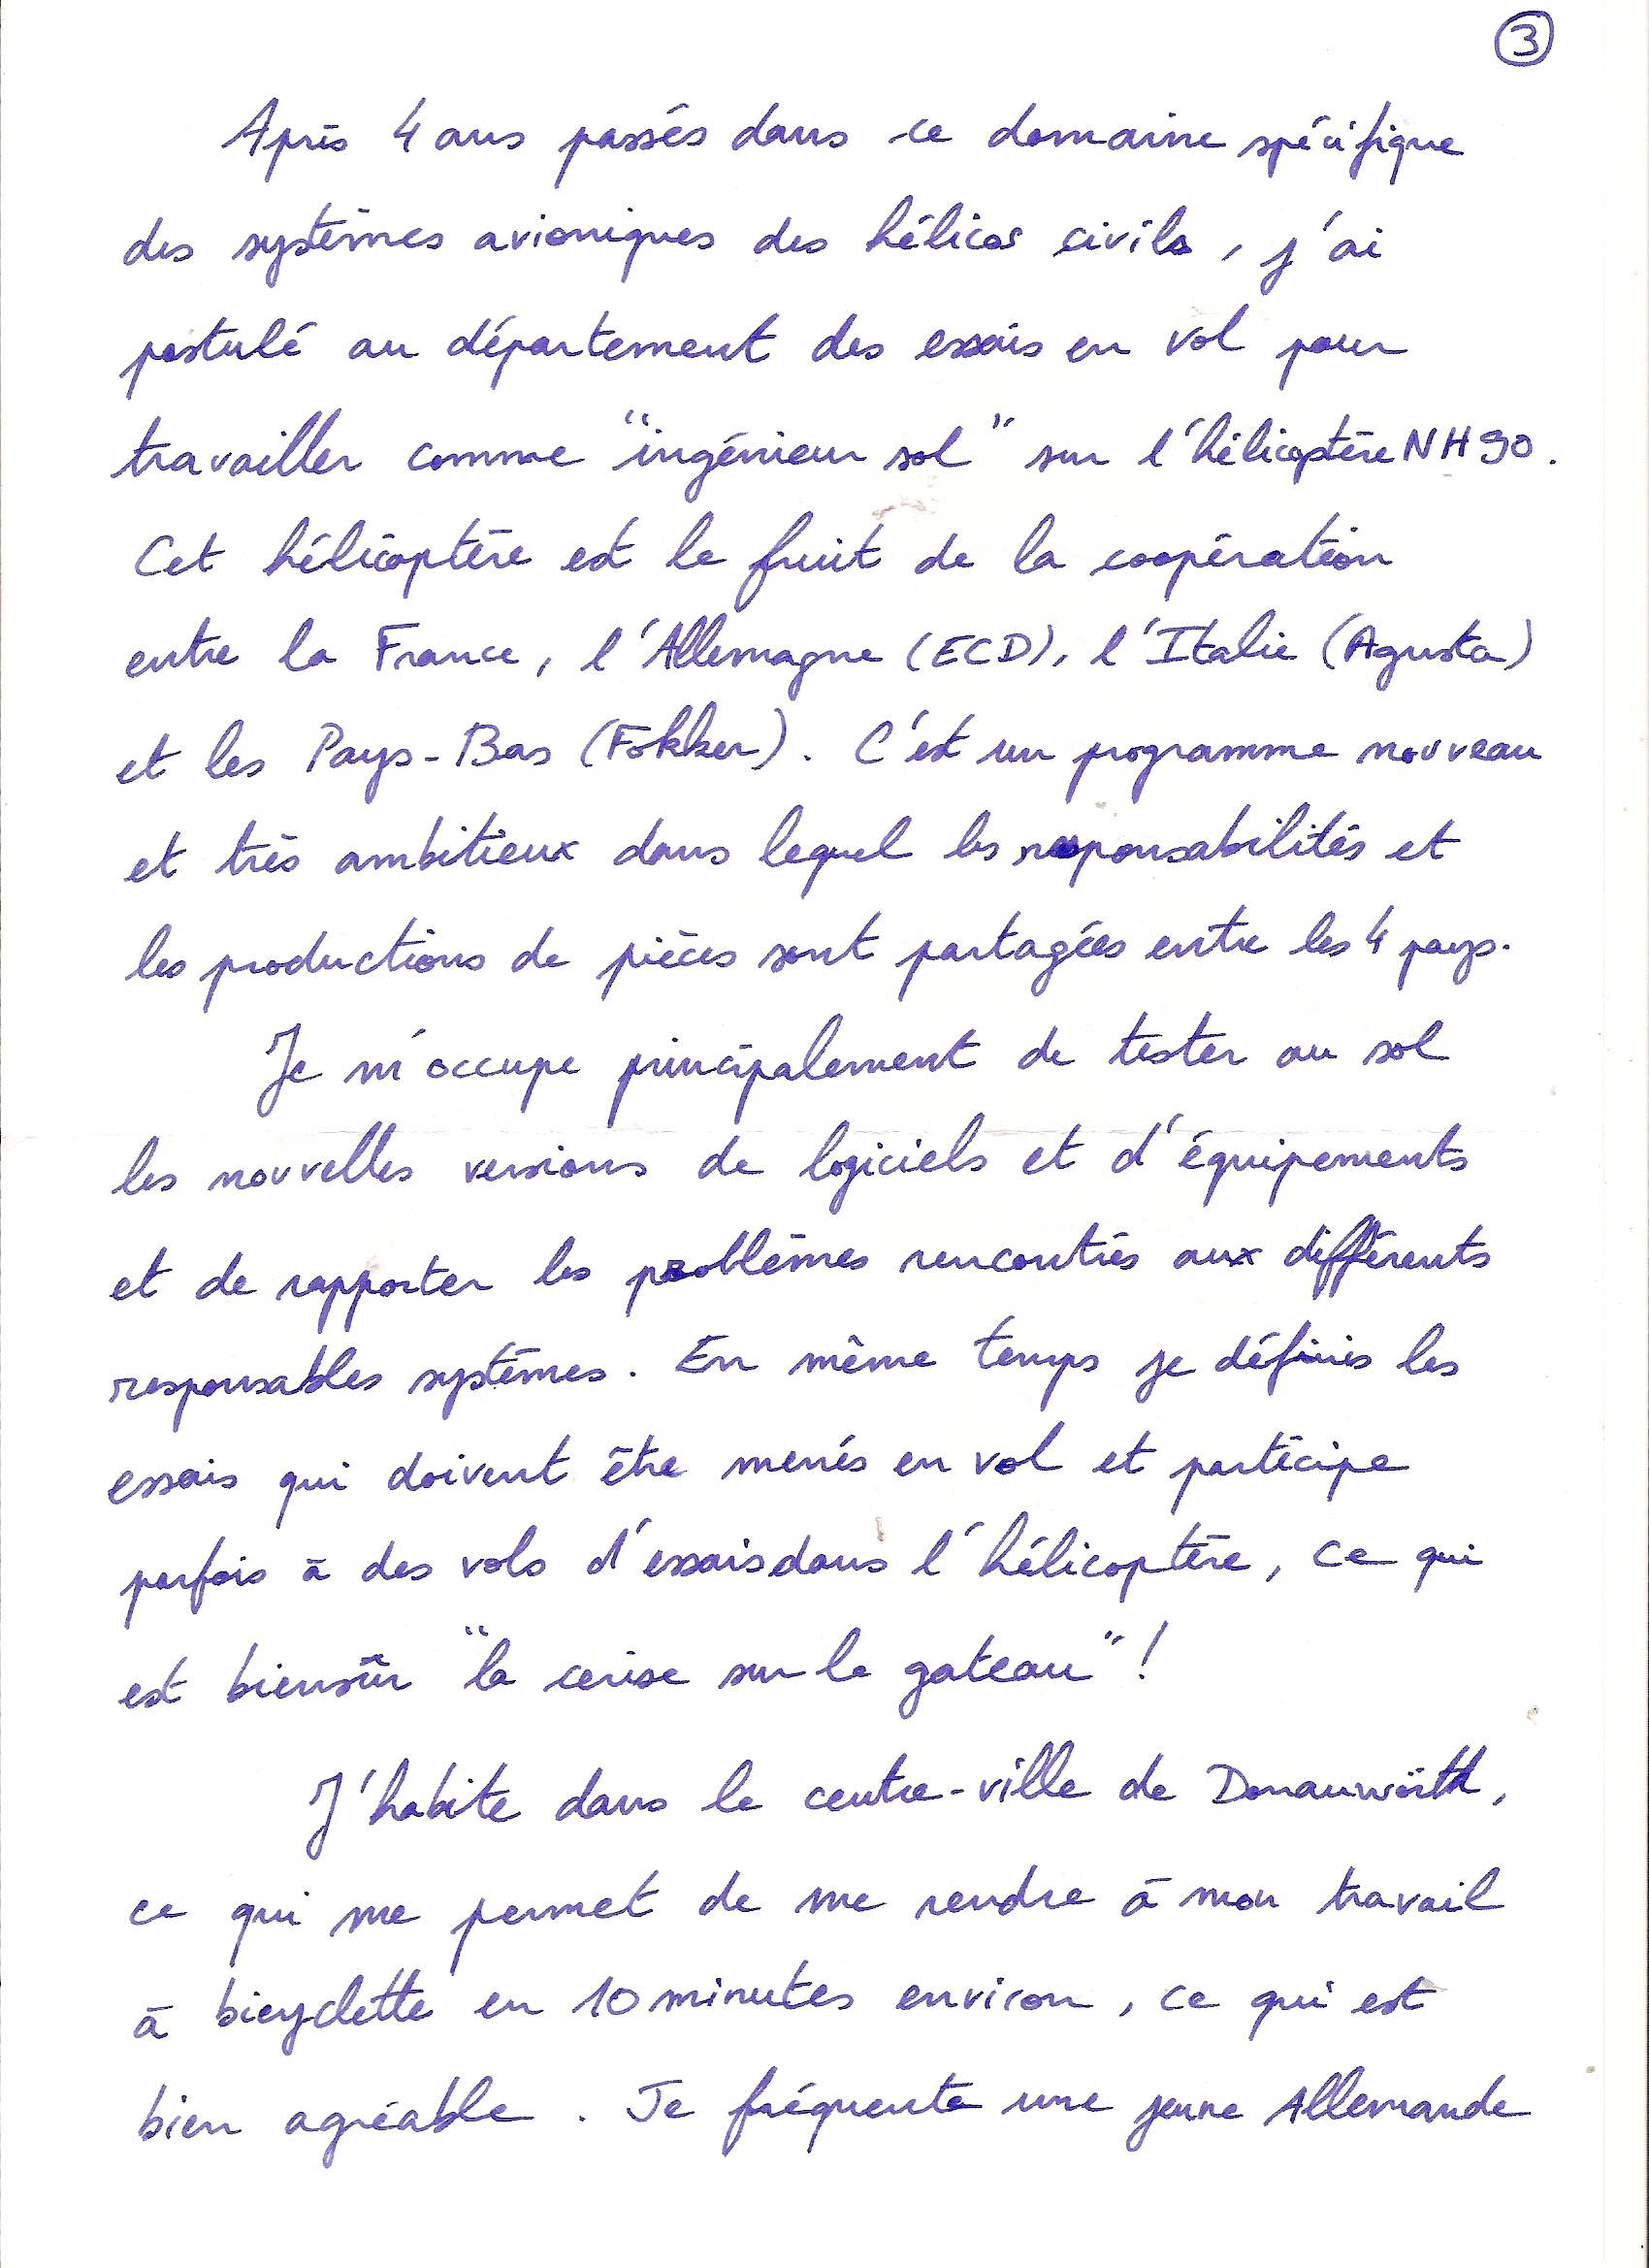 3
Après 4 ans passés dans ce domaine spécifique
des systèmes avioniques des hélicos civils, j'ai
postulé au département des essais en vol pour
travailler comme "ingénieur sol" sur l'hélicoptère NH90.
Cet hélicoptère est le fruit de la coopération
entre la France, l'Allemagne (ECD), l'Italie (Agusta)
et les Pays-Bas (Fokker). C'est un programme nouveau
et très ambitieux dans lequel les responsabilités et
les productions de pièces sont partagées entre les 4 pays.
Je m'occupe principalement de tester au sol
les nouvelles versions de logiciels et d'équipements
et de rapporter les problèmes rencontrés aux différents
responsables systèmes. En même temps je définis les
essais qui doivent être menés en vol et participe
parfois à des vols d'essais dans l'hélicoptère, ce qui
est biensûr "la cerise sur le gateau"!
J'habite dans le centre-ville de Donauwörth,
ce qui me permet de me rendre à mon travail
à bicyclette en 10 minutes environ, ce qui est
bien agréable. Je fréquente une jeune Allemande